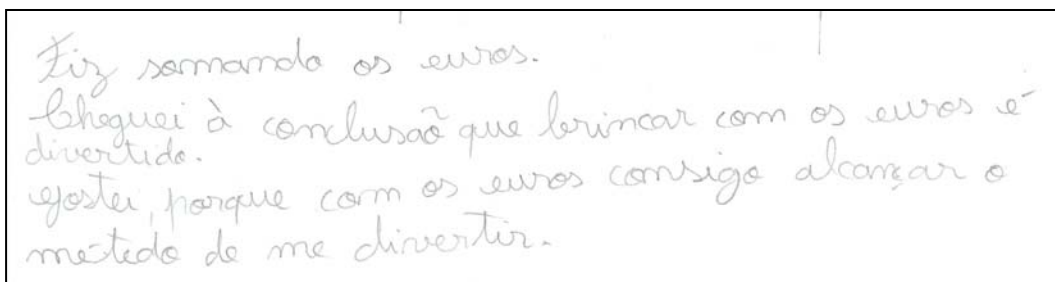 Fiz somando os euros.
Cheguei à conclusão que brincar com os euros é
divertido.
Gostei, porque com os euros consigo alcançar o
métedo de me divertir.